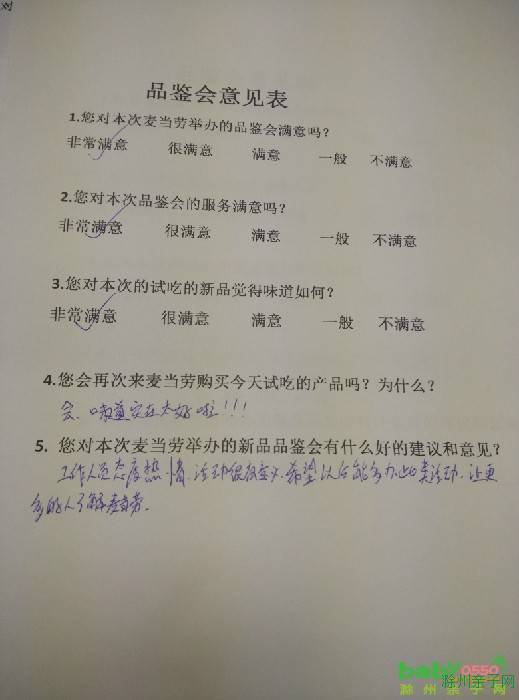 对
品鉴会意见表
1.您对本次麦当劳举办的品鉴会满意吗?
非常满意 很满意 满意 一般 不满意
2.您对本次品鉴会的服务满意吗?
非常满意 很满意 满意 一般 不满意
3.您对本次的试吃的新品觉得味道如何?
非常满意 很满意 满意 一般 不满意
4.您会再次来麦当劳购买今天试吃的产品吗?为什么?
会、味道实在太好啦!!!
5. 您对本次麦当劳举办的新品品鉴会有什么好的建议和意见?
工作人员态度热情、活动很有意义、希望以后能多办此类活动、让更
多的人了解麦当劳.
baby0550
滁州亲子网
滁州亲子网